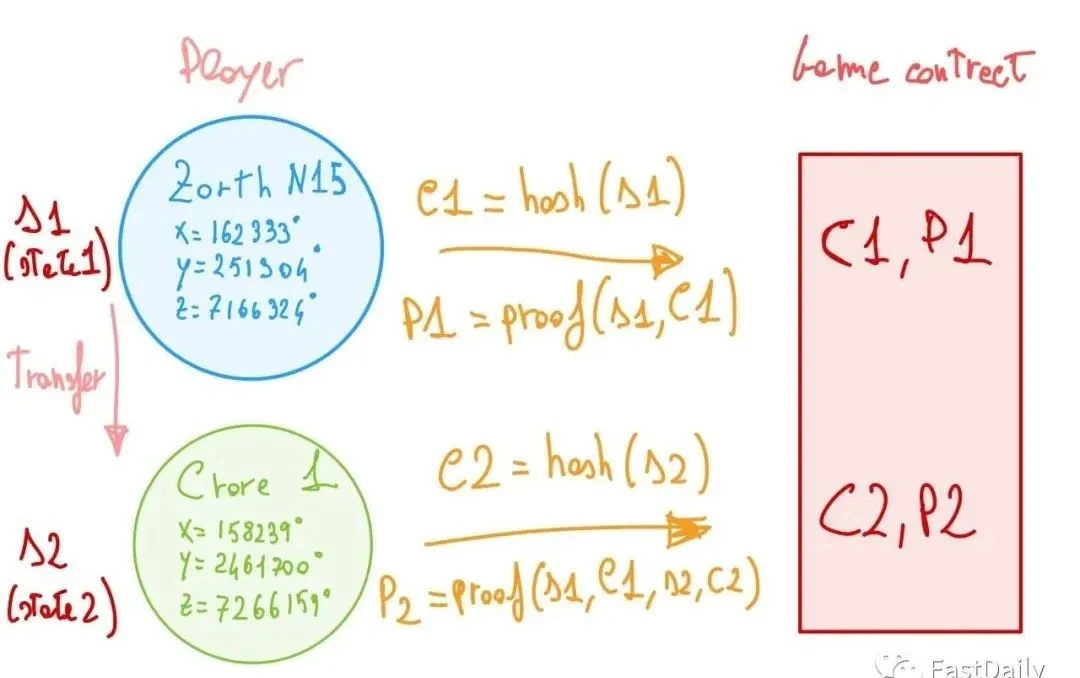 Player
Game contract
S1
(state1)
Zorth N15
X=162333°
Y=251304°
Z=7166324°
C1=hash(S1)
P1=proof(S1,C1)
C1,P1
Transfer
S2
(state2)
Crore 1
X=158239°
Y=2461700°
Z=7266159°
C2=hash(S2)
P2=proof(S1,C1,S2,C2)
C2,P2
FastDaily